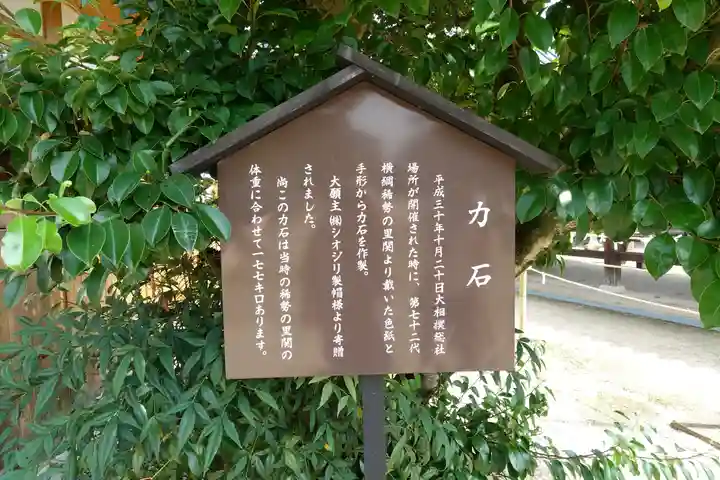 力石
平成三十年十月二十日大相撲総社
場所が開催された時に、第七十二代
横綱稀勢の里関より戴いた色紙と
手形から力石を作製。
大願主㈱シオジリ製帽様より寄贈
されました。
尚この力石は当時の稀勢の里関の
体重に合わせて一七七キロあります。